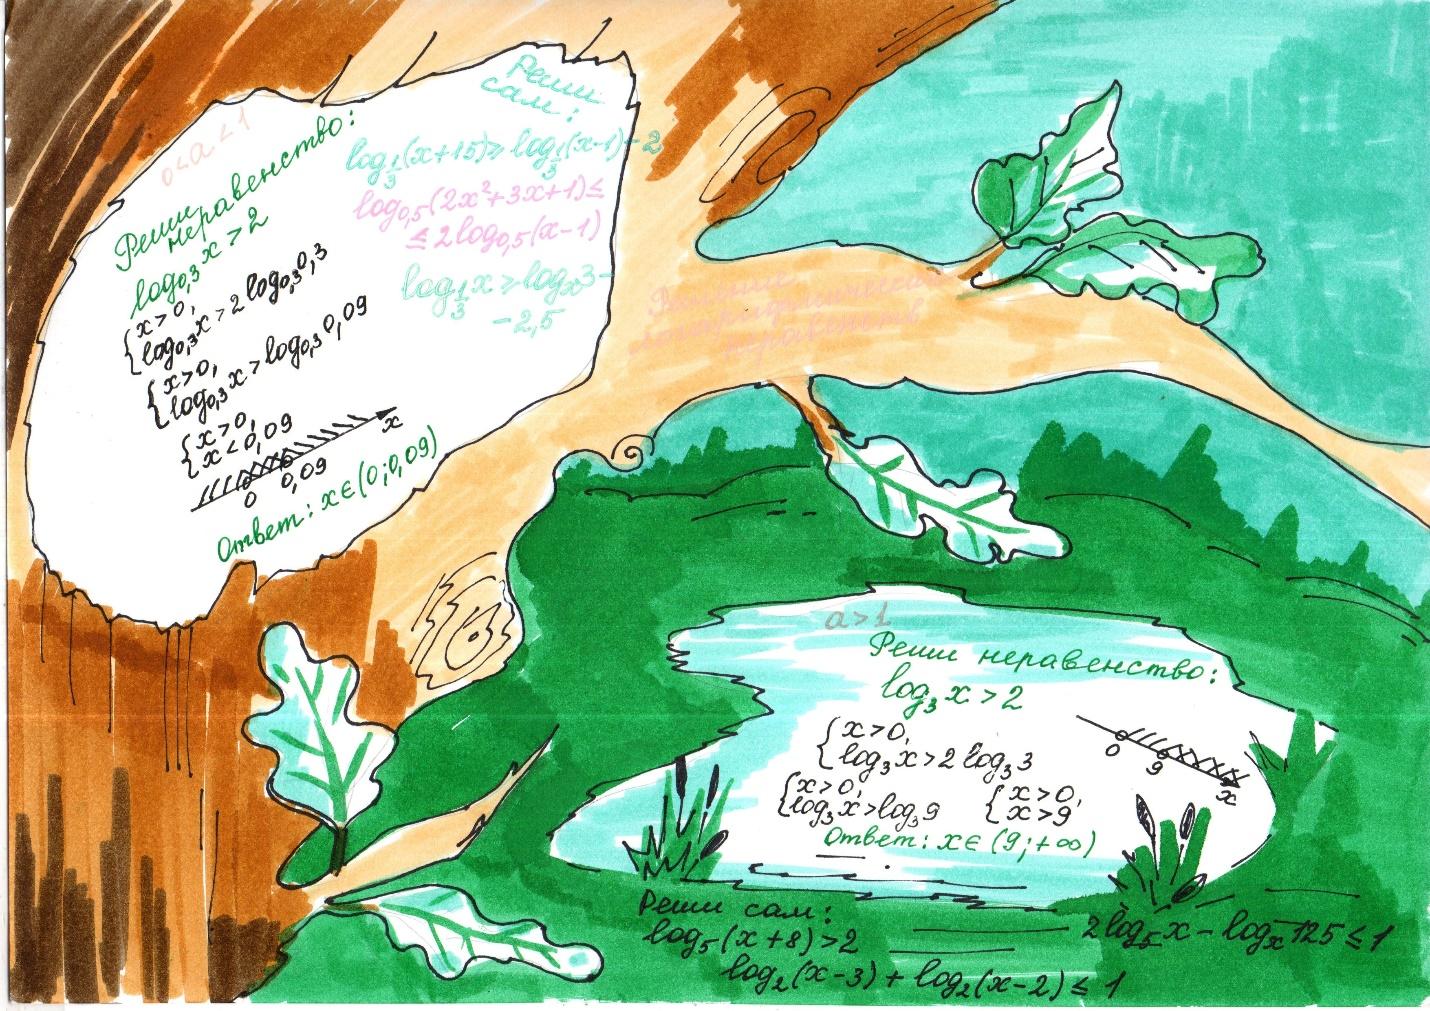 0<a<1
Реши
неравенство:
log₀,₃x>2
{x>0,
{log₀,₃x>2log₀,₃0,3
{x>0,
{log₀,₃x>log₀,₃0,09
{x>0,
{x<0,09
0 0,09 x
Ответ: x∈(0;0,09)
Реши
сам:
log_⅓(x+15)≥log_⅓(x-1)-2
log₀,₅(2x²+3x+1)≤
≤2log₀,₅(x-1)
log_⅓x≥logₓ3-
-2,5
Решение
логарифмических
неравенств
a>1
Реши неравенство:
log₃x>2
{x>0,
{log₃x>2log₃3
{x>0,
{log₃x>log₃9
{x>0,
{x>9
0 9 x
Ответ: x∈(9;+∞)
Реши сам:
log₅(x+8)>2
2log₅x-logₓ125≤1
log₂(x-3)+log₂(x-2)≤1